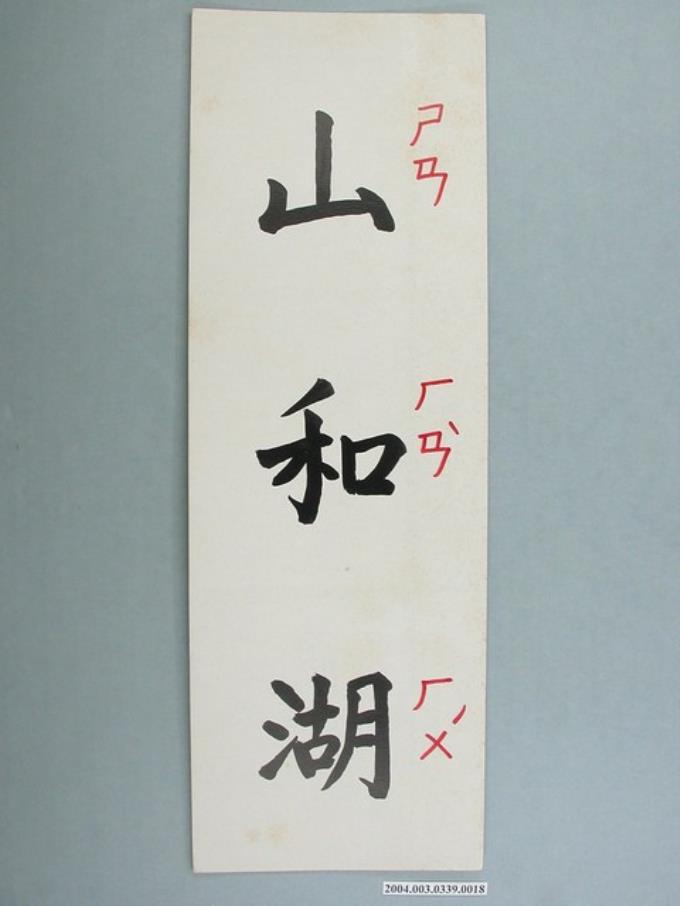 山和湖
ㄕㄢ
ㄏㄢˋ
ㄏㄨˊ
2004.003.0339.0018